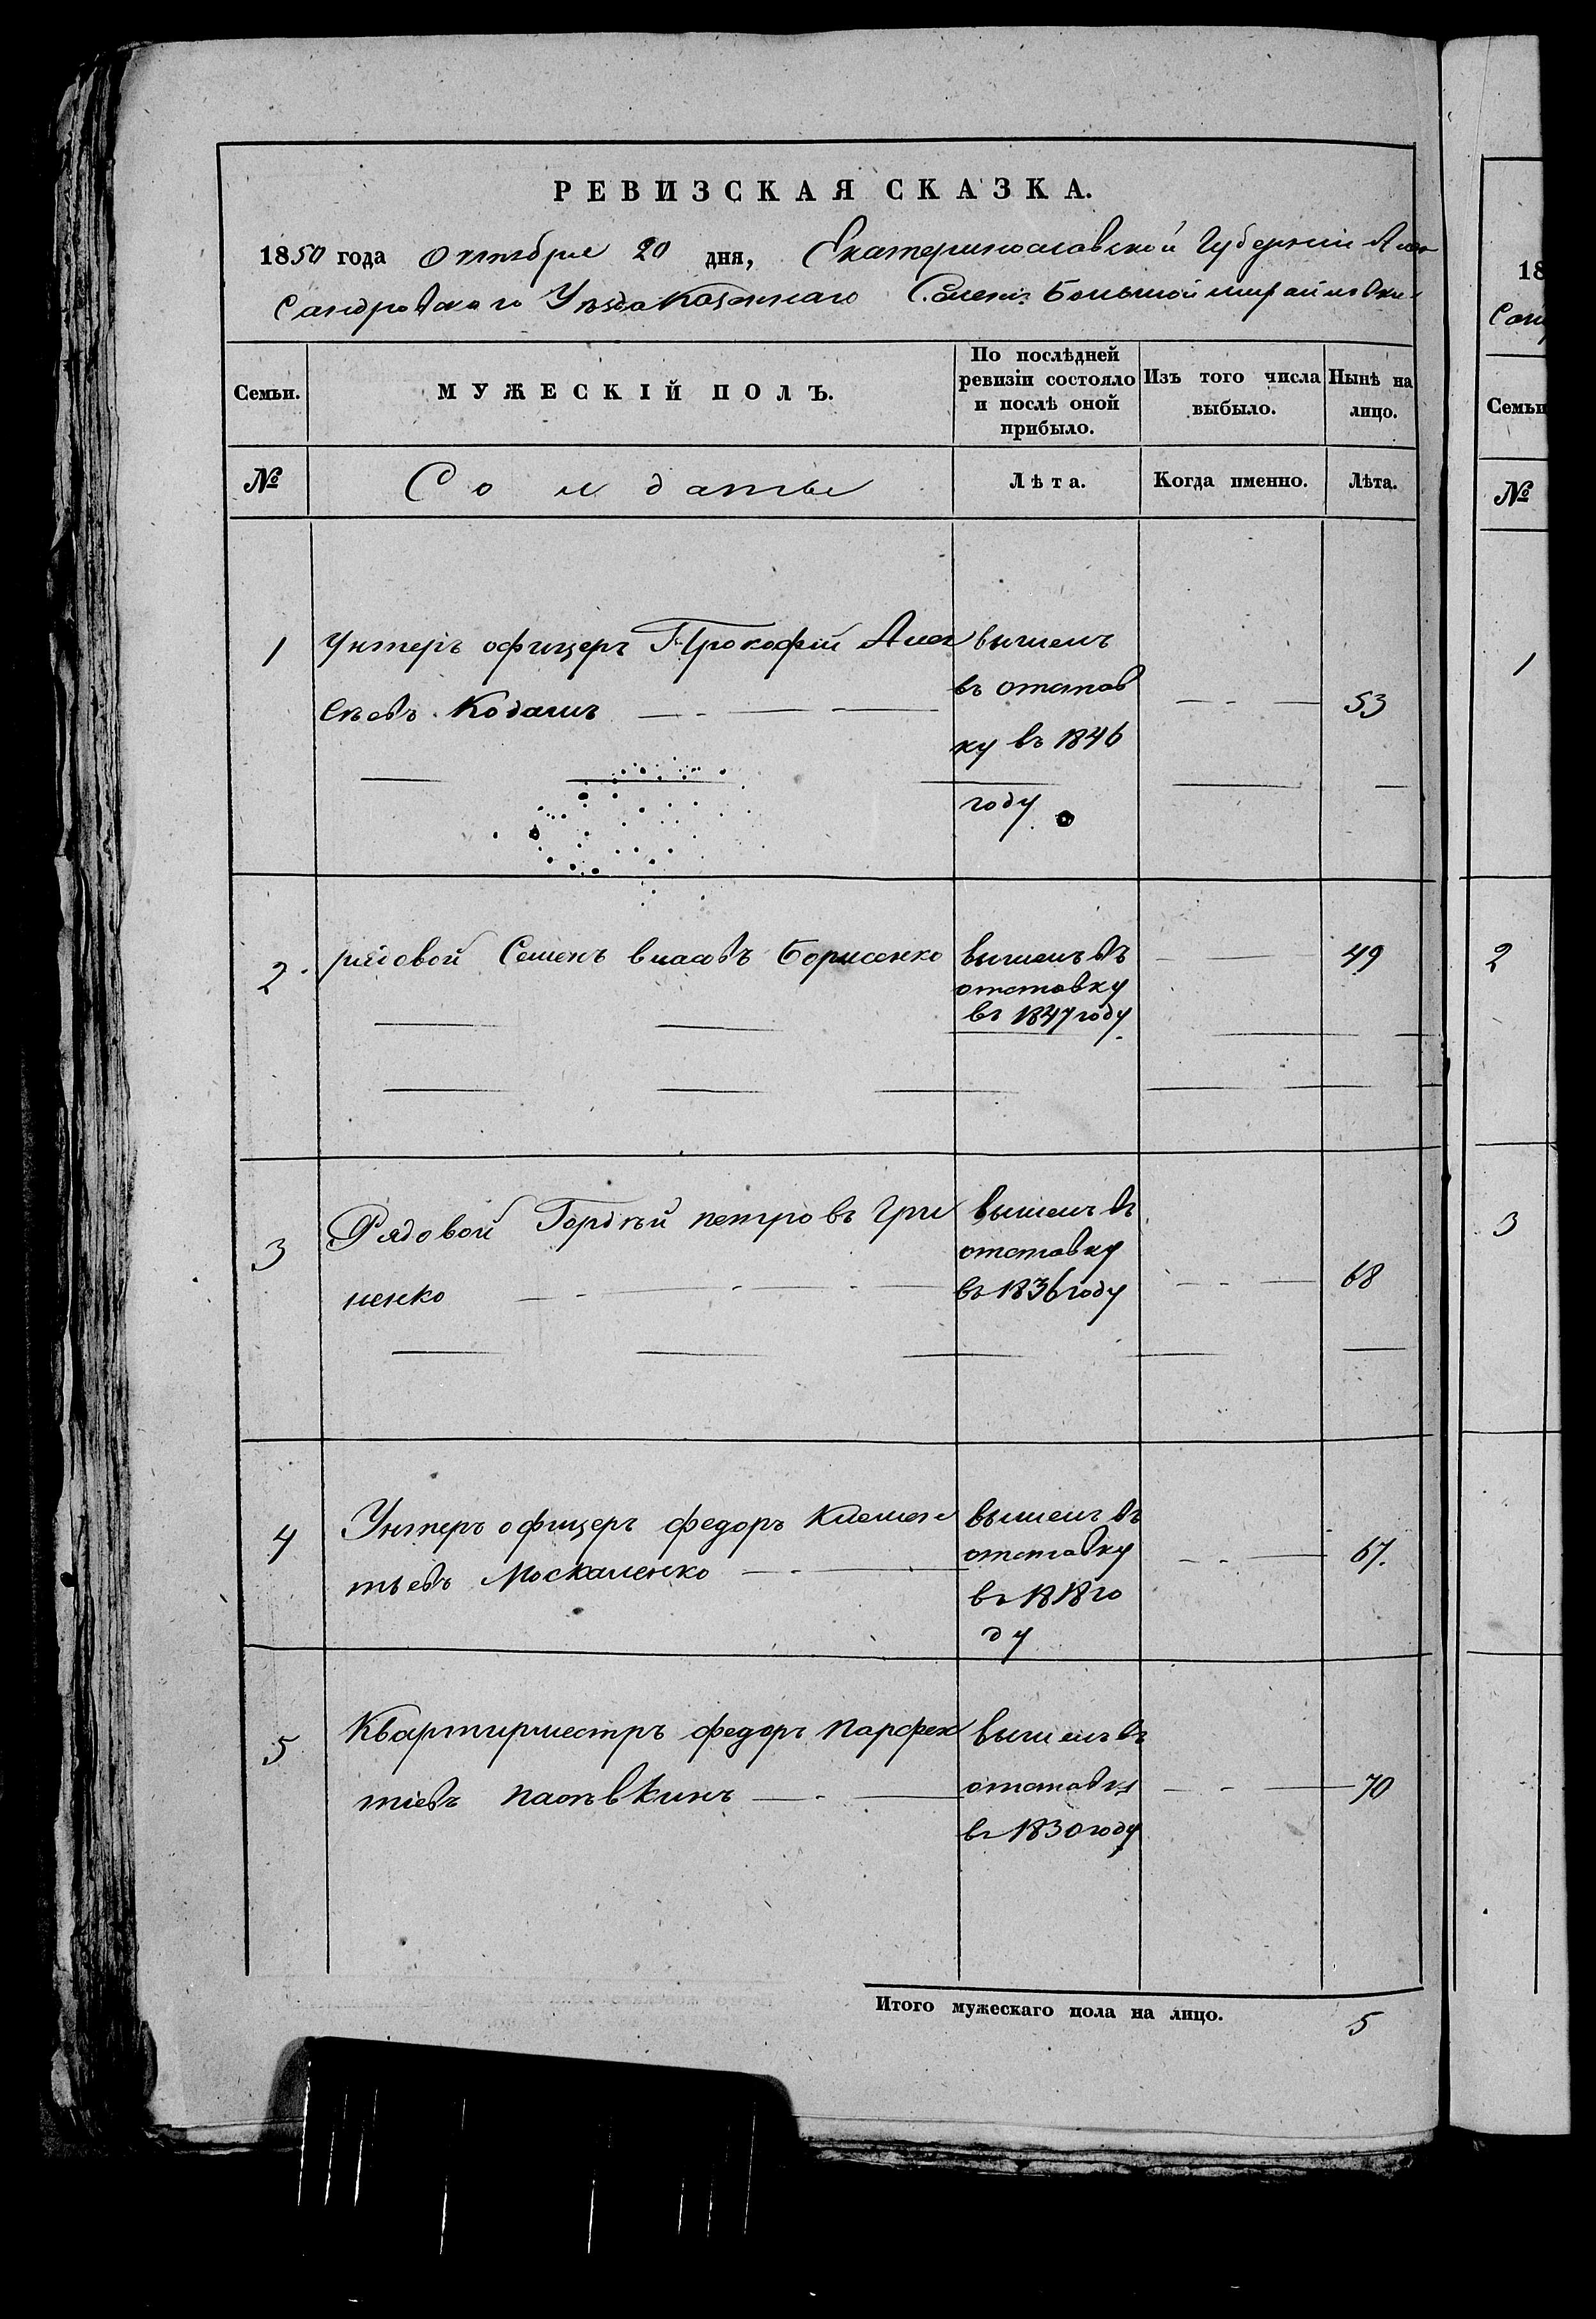 РЕВИЗСКАЯ СКАЗКА.
1850 года Октября 20 дня, Екатеринославской Губернии Алек
сандровского Уѣзда Казеннаго Селенія Большой Михайловки
Семьи.
МУЖЕСКІЙ ПОЛЪ.
По послѣдней
ревизіи состояло
и послѣ оной
прибыло.
Изъ того числа
выбыло.
Нынѣ на
лицо.
№
Солдаты
Лѣта.
Когда именно.
Лѣта.
1
Унтеръ офицеръ Прокофій Алек
сѣевъ Кодашъ
вышелъ
въ отстав
ку въ 1846
году
53
2
рядовой Семенъ власовъ Борисенко
вышелъ въ
отставку
въ 1847 году
49
3
Рядовой Гордѣй петровъ Гри
ненко
вышелъ въ
отставку
въ 1836 году
68
4
Унтеръ офицеръ федоръ Клемен
тьевъ Москаленко
вышелъ въ
отставку
въ 1818 го
ду
67.
5
Квартирместръ федоръ парфен
тіевъ
вышелъ въ
отставку
въ 1830 году
70
Итого мужескаго пола на лицо.
5
18
Семьи
№
1
2
3